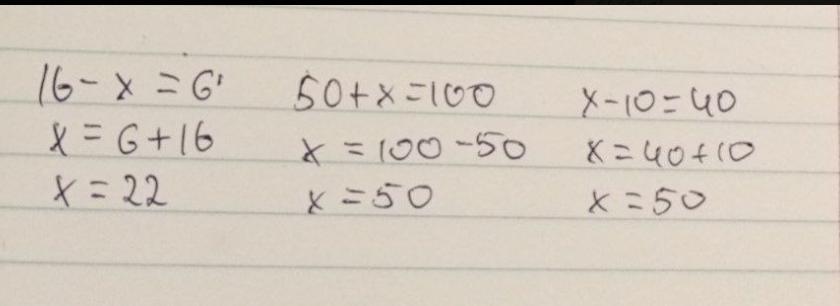 16 - x = 6
x = 6 + 16
x = 22
50 + x = 100
x = 100 - 50
x = 50
x - 10 = 40
x = 40 + 10
x = 50